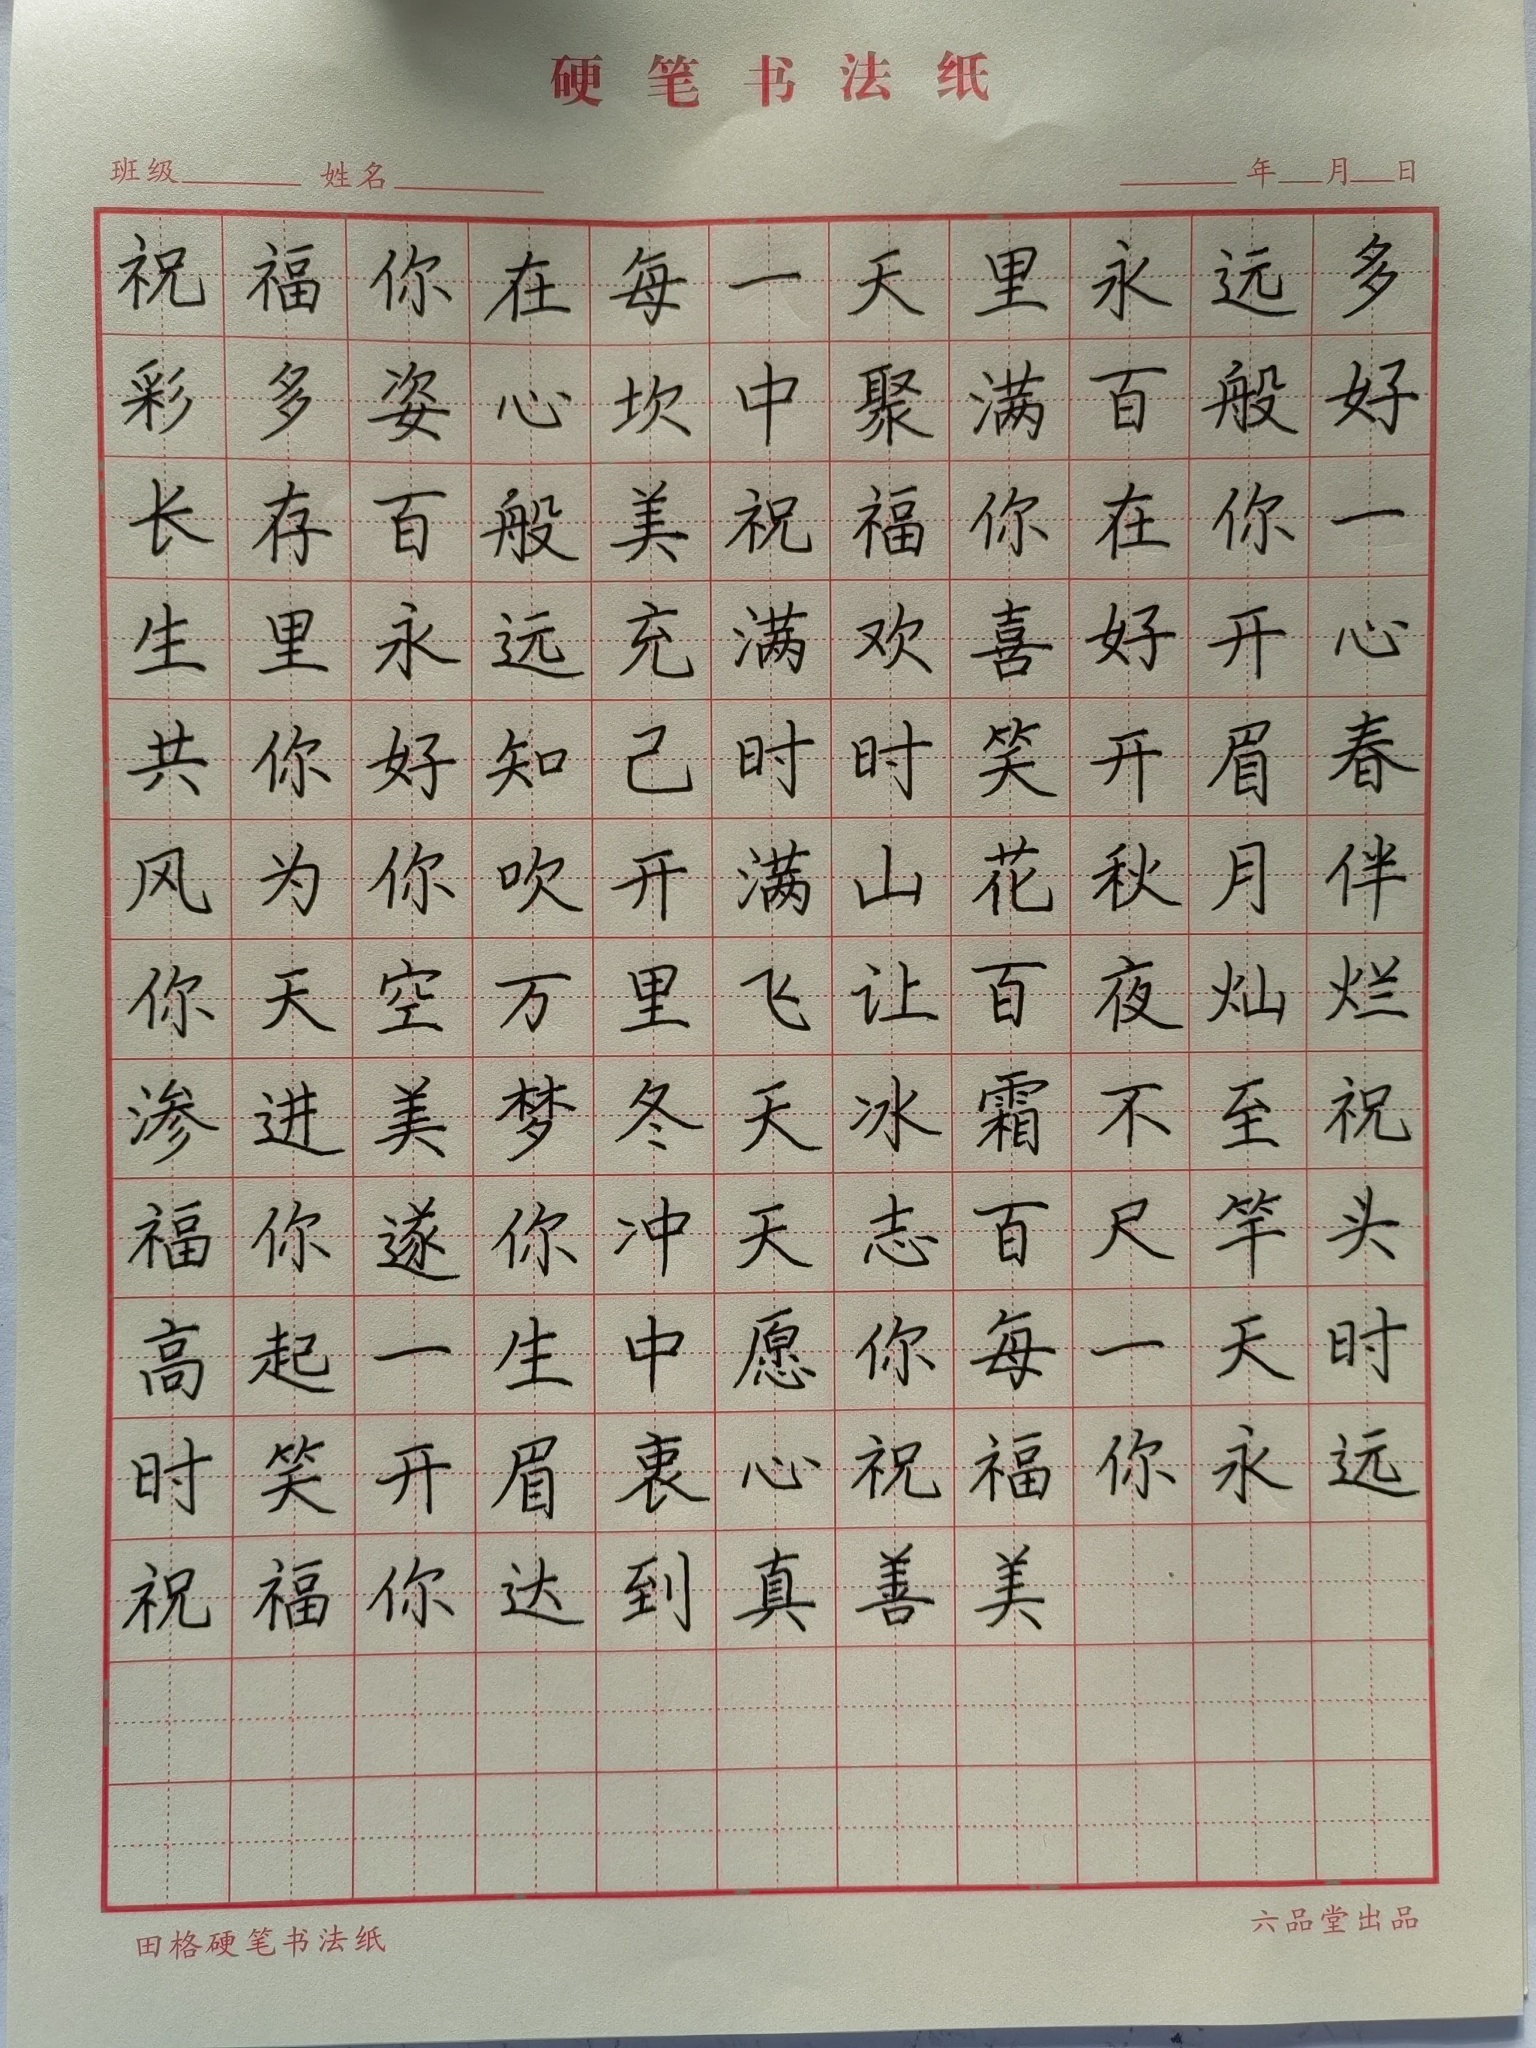 硬笔书法纸
班级 姓名 年 月 日
祝福你在每一天里永远多
彩多姿心坎中聚满百般好
长存百般美祝福你在你一
生里永远充满欢喜好开心
共你好知己时时笑开眉春
风为你吹开满山花秋月伴
你天空万里飞让百夜灿烂
渗进美梦冬天冰霜不至祝
福你遂你冲天志百尺竿头
高起一生中愿你每一天时
时笑开眉衷心祝福你永远
祝福你达到真善美
田格硬笔书法纸 六品堂出品